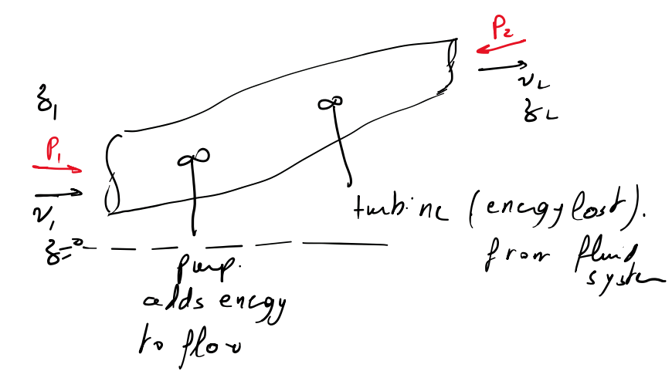 P₂
v₂
z₂
z₁
P₁
v₁
z=0
turbine (energy lost).
from fluid
system
pump.
adds energy
to flow